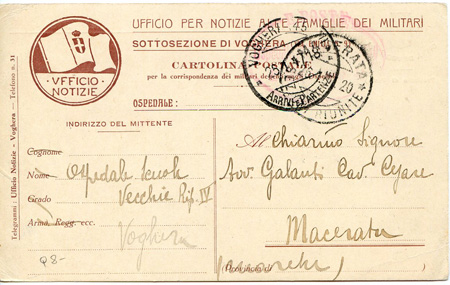 UFFICIO PER NOTIZIE ALLE FAMIGLIE DEI MILITARI
SOTTOSEZIONE DI VOGHERA
CARTOLINA
per la corrispondenza dei militari
OSPEDALE:
VFFICIO
NOTIZIE
Telegrammi: Ufficio Notizie - Voghera — Telefono n. 31
VOGHERA
MACERATA
ARRIVI E PARTENZE
RIUNITE
20
INDIRIZZO DEL MITTENTE
Cognome
Nome Ospedale Scuole
Grado Vecchie Rip. IV
Arma, Regg. ecc.
Voghera
98-
Al Chiarmo Signore
Avv. Galanti Cav. Cesare
Macerata
(Provincia di
(Marche)